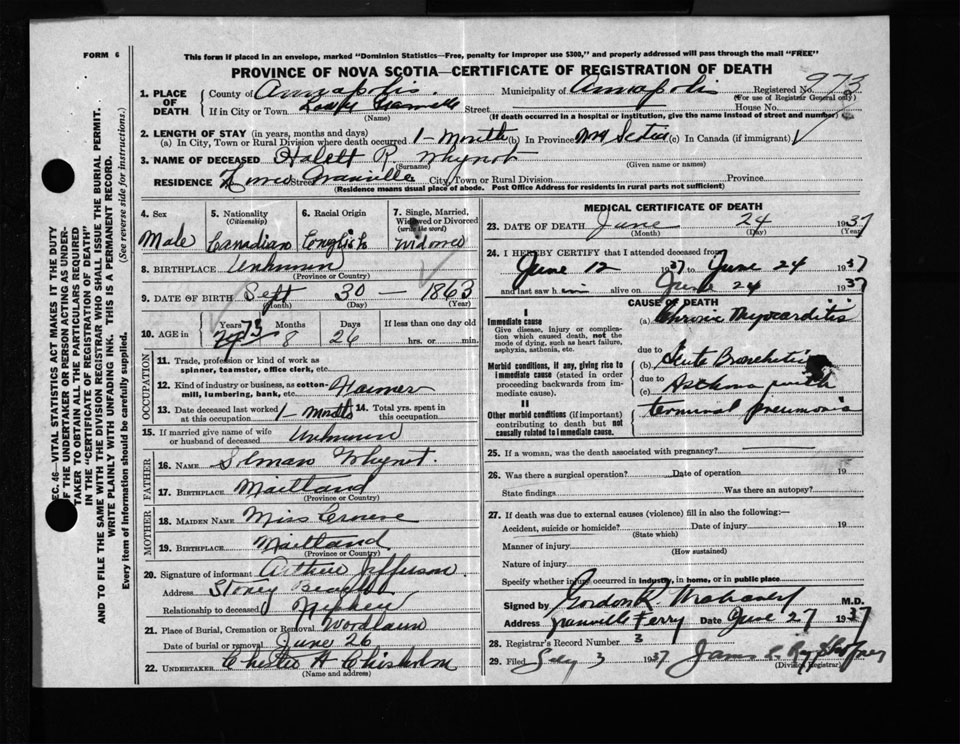 FORM 6
This form if placed in an envelope, marked "Dominion Statistics—Free, penalty for improper use $300," and properly addressed will pass through the mail "FREE"
PROVINCE OF NOVA SCOTIA—CERTIFICATE OF REGISTRATION OF DEATH
SEC. 46—VITAL STATISTICS ACT MAKES IT THE DUTY
OF THE UNDERTAKER OR PERSON ACTING AS UNDER-
TAKER TO OBTAIN ALL THE PARTICULARS REQUIRED
IN THE "CERTIFICATE OF REGISTRATION OF DEATH"
AND TO FILE THE SAME WITH THE DIVISION REGISTRAR WHO SHALL ISSUE THE BURIAL PERMIT.
WRITE PLAINLY WITH UNFADING INK. THIS IS A PERMANENT RECORD.
Every item of information should be carefully supplied. (See reverse side for instructions.)
1. PLACE OF DEATH
County of Annapolis Municipality of Annapolis Registered No. 973
(For use of Registrar General only)
If in City or Town Granville Street House No.
(Name) (If death occurred in a hospital or institution, give the name instead of street and number)
2. LENGTH OF STAY (in years, months and days)
(a) In City, Town or Rural Division where death occurred 1-Month (b) In Province Nova Scotia (c) In Canada (if immigrant)
3. NAME OF DECEASED Halett R. Whynot
(Surname) (Given name or names)
RESIDENCE Street Granville City, Town or Rural Division Province
(Residence means usual place of abode. Post Office Address for residents in rural parts not sufficient)
4. Sex Male
5. Nationality (Citizenship) Canadian
6. Racial Origin English
7. Single, Married, Widowed or Divorced (write the word) Widowed
8. BIRTHPLACE Unknown
(Province or Country)
9. DATE OF BIRTH Sept 30 — 1863
(Month) (Day) (Year)
10. AGE in Years 73 Months 8 Days 26 If less than one day old hrs. or min.
OCCUPATION
11. Trade, profession or kind of work as spinner, teamster, office clerk, etc.
12. Kind of industry or business, as cotton-mill, lumbering, bank, etc. Farmer
13. Date deceased last worked at this occupation 1-Month 14. Total yrs. spent in this occupation
15. If married give name of wife or husband of deceased Unknown
FATHER
16. NAME Silman Whynot.
17. BIRTHPLACE Maitland
(Province or Country)
MOTHER
18. MAIDEN NAME Miss
19. BIRTHPLACE Maitland
(Province or Country)
20. Signature of informant Arthur Jefferson.
Address Stoney Beach
Relationship to deceased Nephew
21. Place of Burial, Cremation or Removal Woodlawn
Date of burial or removal June 26
22. UNDERTAKER Chester A Chisholm
(Name and address)
MEDICAL CERTIFICATE OF DEATH
23. DATE OF DEATH June 24 1937
(Month) (Day) (Year)
24. I HEREBY CERTIFY that I attended deceased from
June 12 1937 to June 24 1937
and last saw him alive on June 24 1937
CAUSE OF DEATH
I
Immediate cause
Give disease, injury or complication which caused death, not the mode of dying, such as heart failure, asphyxia, asthenia, etc.
(a) Chronic Myocarditis
due to
Morbid conditions, if any, giving rise to immediate cause (stated in order proceeding backwards from immediate cause).
(b) Acute Bronchitis
due to
(c) Asthma with
II
Other morbid conditions (if important) contributing to death but not causally related to immediate cause.
terminal pneumonia
25. If a woman, was the death associated with pregnancy?
26. Was there a surgical operation? Date of operation 19
State findings Was there an autopsy?
27. If death was due to external causes (violence) fill in also the following:—
Accident, suicide or homicide? Date of injury 19
(State which)
Manner of injury
(How sustained)
Nature of injury
Specify whether injury occurred in industry, in home, or in public place
Signed by Gordon R Mahaney M.D.
Address Granville Ferry Date June 27 1937
28. Registrar's Record Number 3
29. Filed July 3 1937
(Division Registrar)